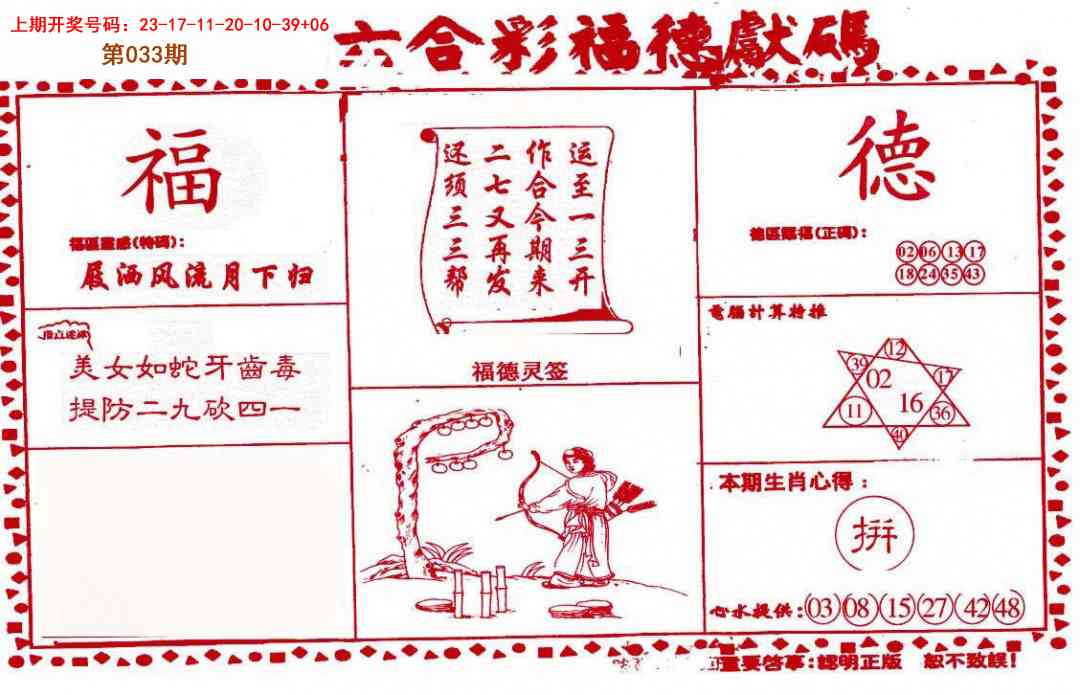 上期开奖号码：23-17-11-20-10-39+06
第033期
六合彩福德獻碼
福
福區靈感(特碼)：
屐洒风流月下归
指点迷津
美女如蛇牙齒毒
提防二九砍四一
运至一三开
作合今期来
二七又再发
还须三三帮
福德灵签
德
德區賜福(正碼)：
02 06 13 17
18 24 35 43
電腦計算特推
12
39 02 17
11 16 36
40
本期生肖心得：
拼
心水提供：03 08 15 27 42 48
重要啓事：認明正版 恕不致誤！